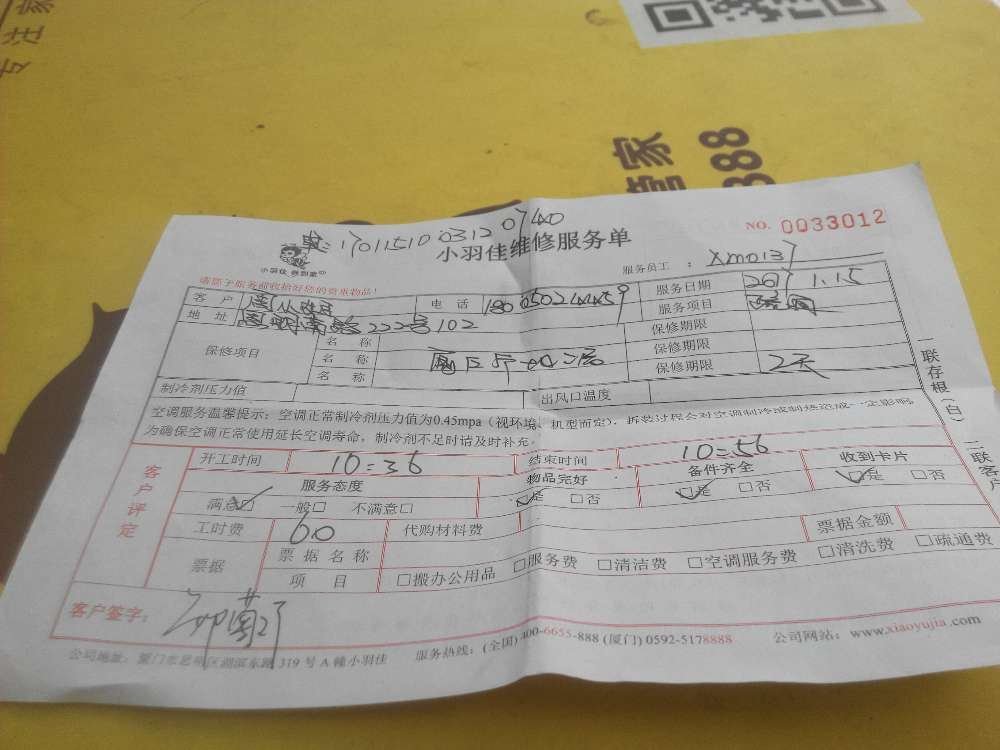 专注家
管家
888
单:1701151003120740
小羽佳维修服务单
NO. 0033012
小羽佳 您到家
请您于服务前收拾好您的贵重物品!
服务员工 : xm0137
客 户 电 话 18050244459 服务日期 2017.1.15
地 址 南路222号102 服务项目
保修项目 名 称 保修期限
名 称 保修期限
名 称 保修期限 2天
制冷剂压力值 出风口温度
空调服务温馨提示:空调正常制冷剂压力值为0.45mpa(视环境、机型而定),拆装过程会对空调制冷或制热造成一定影响
为确保空调正常使用延长空调寿命,制冷剂不足时请及时补充。
一联存根(白) 二联客户
客户评定
开工时间 10:36 结束时间 10:56
服务态度 物品完好 备件齐全 收到卡片
满意□ 一般□ 不满意□ □是 □否 □是 □否 □是 □否
工时费 60 代购材料费
票据 票据名称 票据金额
项 目 □搬办公用品 □服务费 □清洁费 □空调服务费 □清洗费 □疏通费
客户签字:
公司地址:厦门市思明区湖滨东路 319 号 A 幢小羽佳 服务热线:(全国) 400-6655-888 (厦门) 0592-5178888 公司网站:www.xiaoyujia.com